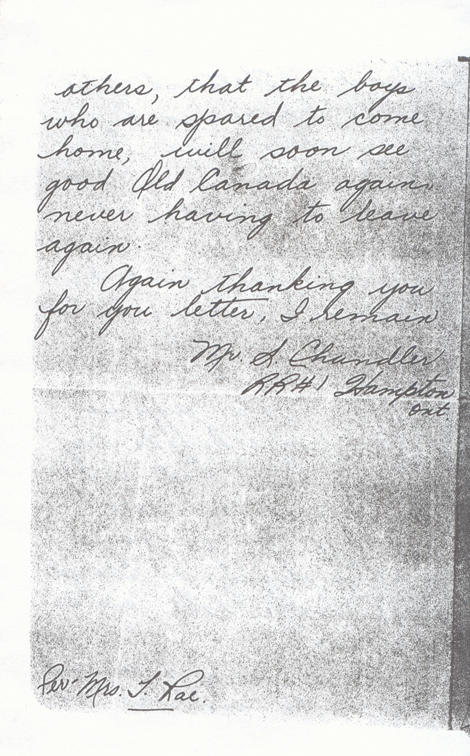 others, that the boys
who are spared to come
home, will soon see
good Old Canada again
never having to leave
again.
Again thanking you
for you letter, I remain
Mr S. Chandler
RR#1 Hampton
Ont.
Per Mrs. T. Rae.